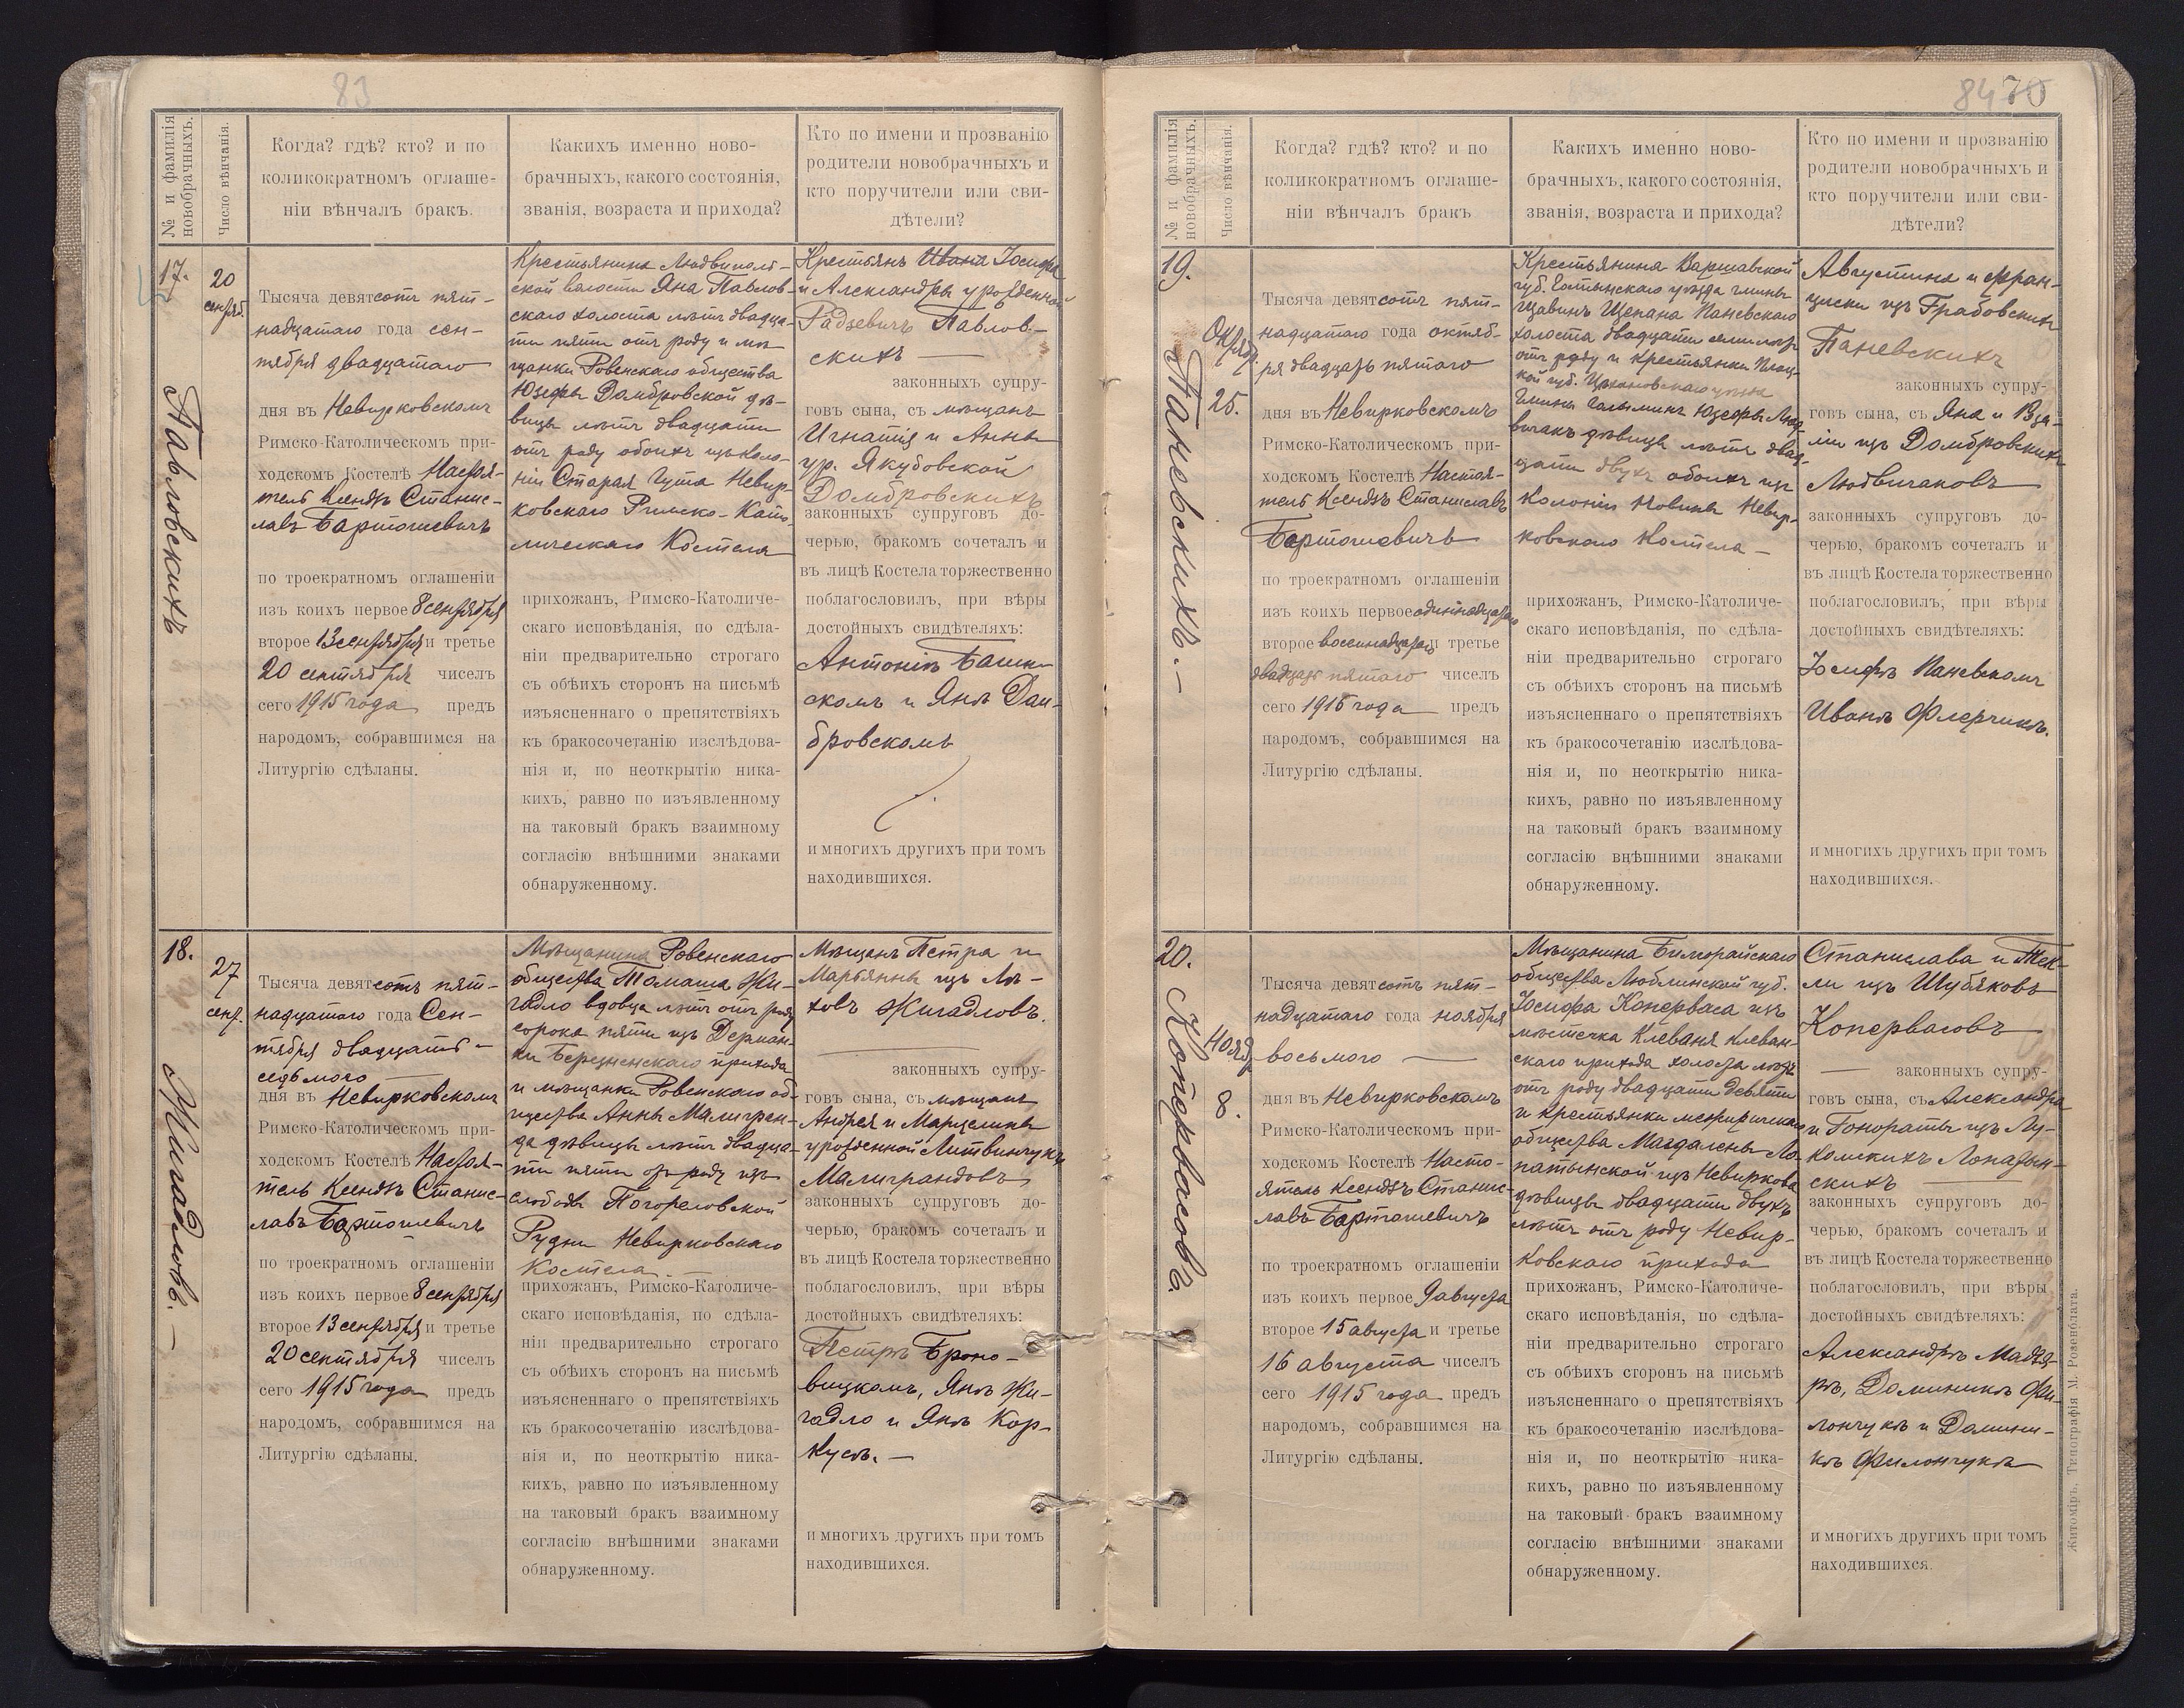 83
№ и фамилія новобрачныхъ.
Число вѣнчанія.
Когда? гдѣ? кто? и по
коликократномъ оглаше-
ніи вѣнчалъ бракъ.
Какихъ именно ново-
брачныхъ, какого состоянія,
званія, возраста и прихода?
Кто по имени и прозванію
родители новобрачныхъ и
кто поручители или сви-
дѣтели?
17.
Павловскихъ
20
сентяб.
Тысяча девятсотъ пят-
надцатаго года сен-
тября двадцатаго
дня въ Невирковскомъ
Римско-Католическомъ при-
ходскомъ Костелѣ Настоя-
тель Ксендзъ Станис-
лавъ Бартошевичъ
по троекратномъ оглашеніи
изъ коихъ первое 8 сентября
второе 13 сентября и третье
20 сентября чиселъ
сего 1915 года предъ
народомъ, собравшимся на
Литургію сдѣланы.
Крестьянина Людвиполь-
ской волости Яна Павлов-
скаго холоста лѣтъ двадца-
ти пяти отъ роду и мѣ-
щанки Ровенскаго общества
Юзефы Домбровской дѣ-
вицы лѣтъ двадцати
отъ роду обоихъ изъ коло-
ніи Старая Гута Невир-
ковскаго Римско-Като-
лическаго Костела
прихожанъ, Римско-Католиче-
скаго исповѣданія, по сдѣла-
ніи предварительно строгаго
съ обѣихъ сторонъ на письмѣ
изъясненнаго о препятствіяхъ
къ бракосочетанію изслѣдова-
нія и, по неоткрытію ника-
кихъ, равно по изъявленному
на таковый бракъ взаимному
согласію внѣшними знаками
обнаруженному.
Крестьянъ Ивана Іосифа
и Александры урожденной
Радзевичъ Павлов-
скихъ
законныхъ супру-
говъ сына, съ мѣщанъ
Игнатія и Анны
ур. Якубовской
Домбровскихъ
законныхъ супруговъ до-
черью, бракомъ сочеталъ и
въ лицѣ Костела торжественно
поблагословилъ, при вѣры
достойныхъ свидѣтеляхъ:
Антоніѣ Башин-
скомъ и Янѣ Дом-
бровскомъ
и многихъ другихъ при томъ
находившихся.
18.
Жигадловъ.
27
сент.
Тысяча девятсотъ пят-
надцатаго года Сен-
тября двадцать-
седьмого
дня въ Невирковскомъ
Римско-Католическомъ при-
ходскомъ Костелѣ Настоя-
тель Ксендзъ Станис-
лавъ Бартошевичъ
по троекратномъ оглашеніи
изъ коихъ первое 8 сентября
второе 13 сентября и третье
20 сентября чиселъ
сего 1915 года предъ
народомъ, собравшимся на
Литургію сдѣланы.
Мѣщанина Ровенскаго
общества Томаша Жи-
гадло вдовца лѣтъ отъ роду
сорока пяти изъ Дерман-
ки Березненскаго прихода
и мѣщанки Ровенскаго об-
щества Анны Малигран-
да дѣвицы лѣтъ двадца-
ти пяти отъ роду изъ
слободы Погореловской
Рудни Невирковскаго
Костела
прихожанъ, Римско-Католиче-
скаго исповѣданія, по сдѣла-
ніи предварительно строгаго
съ обѣихъ сторонъ на письмѣ
изъясненнаго о препятствіяхъ
къ бракосочетанію изслѣдова-
нія и, по неоткрытію ника-
кихъ, равно по изъявленному
на таковый бракъ взаимному
согласію внѣшними знаками
обнаруженному.
Мѣщанъ Петра и
Марьянны изъ Лѣ-
ховъ Жигадловъ.
законныхъ супру-
говъ сына, съ мѣщанъ
Андрея и Марцелины
урожденной Литвинчукъ
Малиграндовъ
законныхъ супруговъ до-
черью, бракомъ сочеталъ и
въ лицѣ Костела торжественно
поблагословилъ, при вѣры
достойныхъ свидѣтеляхъ:
Петрѣ Броно-
вицкомъ, Янѣ Жи-
гадло и Янѣ Кор-
кусѣ.
и многихъ другихъ при томъ
находившихся.
84 70
№ и фамилія новобрачныхъ.
Число вѣнчанія.
Когда? гдѣ? кто? и по
коликократномъ оглаше-
ніи вѣнчалъ бракъ
Какихъ именно ново-
брачныхъ, какого состоянія,
званія, возраста и прихода?
Кто по имени и прозванію
родители новобрачныхъ и
кто поручители или сви-
дѣтели?
19.
Паневскихъ.
Октяб.
25.
Тысяча девятсотъ пят-
надцатаго года октяб-
ря двадцать пятаго
дня въ Невирковскомъ
Римско-Католическомъ при-
ходскомъ Костелѣ Настоя-
тель Ксендзъ Станиславъ
Бартошевичъ
по троекратномъ оглашеніи
изъ коихъ первое одиннадцатаго
второе восемнадцатаго и третье
двадцать пятаго чиселъ
сего 1915 года предъ
народомъ, собравшимся на
Литургію сдѣланы.
Крестьянина Варшавской
губ. Гостынскаго уѣзда гмины
Щавинъ Щепана Паневскаго
холоста двадцати семи лѣтъ
отъ роду и крестьянки Плоц-
кой губ. Цѣхановскаго уѣзда
Гмины Голыминъ Юзефы Люд-
вичакъ дѣвицы лѣтъ двад-
цати двухъ обоихъ изъ
Колоніи Новины Невир-
ковскаго Костела
прихожанъ, Римско-Католиче-
скаго исповѣданія, по сдѣла-
ніи предварительно строгаго
съ обѣихъ сторонъ на письмѣ
изъясненнаго о препятствіяхъ
къ бракосочетанію изслѣдова-
нія и, по неоткрытію ника-
кихъ, равно по изъявленному
на таковый бракъ взаимному
согласію внѣшними знаками
обнаруженному.
Августина и Фран-
циски изъ Грабовскихъ
Паневскихъ
законныхъ супру-
говъ сына, съ Яна и Роза-
ліи изъ Домбровскихъ
Людвичаковъ
законныхъ супруговъ до-
черью, бракомъ сочеталъ и
въ лицѣ Костела торжественно
поблагословилъ, при вѣры
достойныхъ свидѣтеляхъ:
Іосифѣ Паневскомъ
Иванѣ Флерчикѣ.
и многихъ другихъ при томъ
находившихся.
20.
Коперваcовъ.
Нояб.
8.
Тысяча девятсотъ пят-
надцатаго года ноября
восьмого
дня въ Невирковскомъ
Римско-Католическомъ при-
ходскомъ Костелѣ Насто-
ятель Ксендзъ Станис-
лавъ Бартошевичъ
по троекратномъ оглашеніи
изъ коихъ первое 9 августа
второе 15 августа и третье
16 августа чиселъ
сего 1915 года предъ
народомъ, собравшимся на
Литургію сдѣланы.
Мѣщанина Билгорайскаго
общества Люблинской губ.
Іосифа Коперваса изъ
мѣстечка Клеваня Клеван-
скаго прихода холоста лѣтъ
отъ роду двадцати девяти
и крестьянки межиричскаго
общества Магдалены Ло-
патынской изъ Невиркова
дѣвицы двадцати двухъ
лѣтъ отъ роду Невир-
ковскаго прихода
прихожанъ, Римско-Католиче-
скаго исповѣданія, по сдѣла-
ніи предварительно строгаго
съ обѣихъ сторонъ на письмѣ
изъясненнаго о препятствіяхъ
къ бракосочетанію изслѣдова-
нія и, по неоткрытію ника-
кихъ, равно по изъявленному
на таковый бракъ взаимному
согласію внѣшними знаками
обнаруженному.
Станислава и Тек-
ли изъ Шубяковъ
Копервасовъ
законныхъ супру-
говъ сына, съ Александра
и Гонораты изъ Лу-
комскихъ Лопатын-
скихъ
законныхъ супруговъ до-
черью, бракомъ сочеталъ и
въ лицѣ Костела торжественно
поблагословилъ, при вѣры
достойныхъ свидѣтеляхъ:
Александрѣ Мадзя-
рѣ, Доминикѣ Фи-
лончукѣ и Домини-
кѣ Филончукѣ
и многихъ другихъ при томъ
находившихся.
Житоміръ. Типографія М. Розенблата.